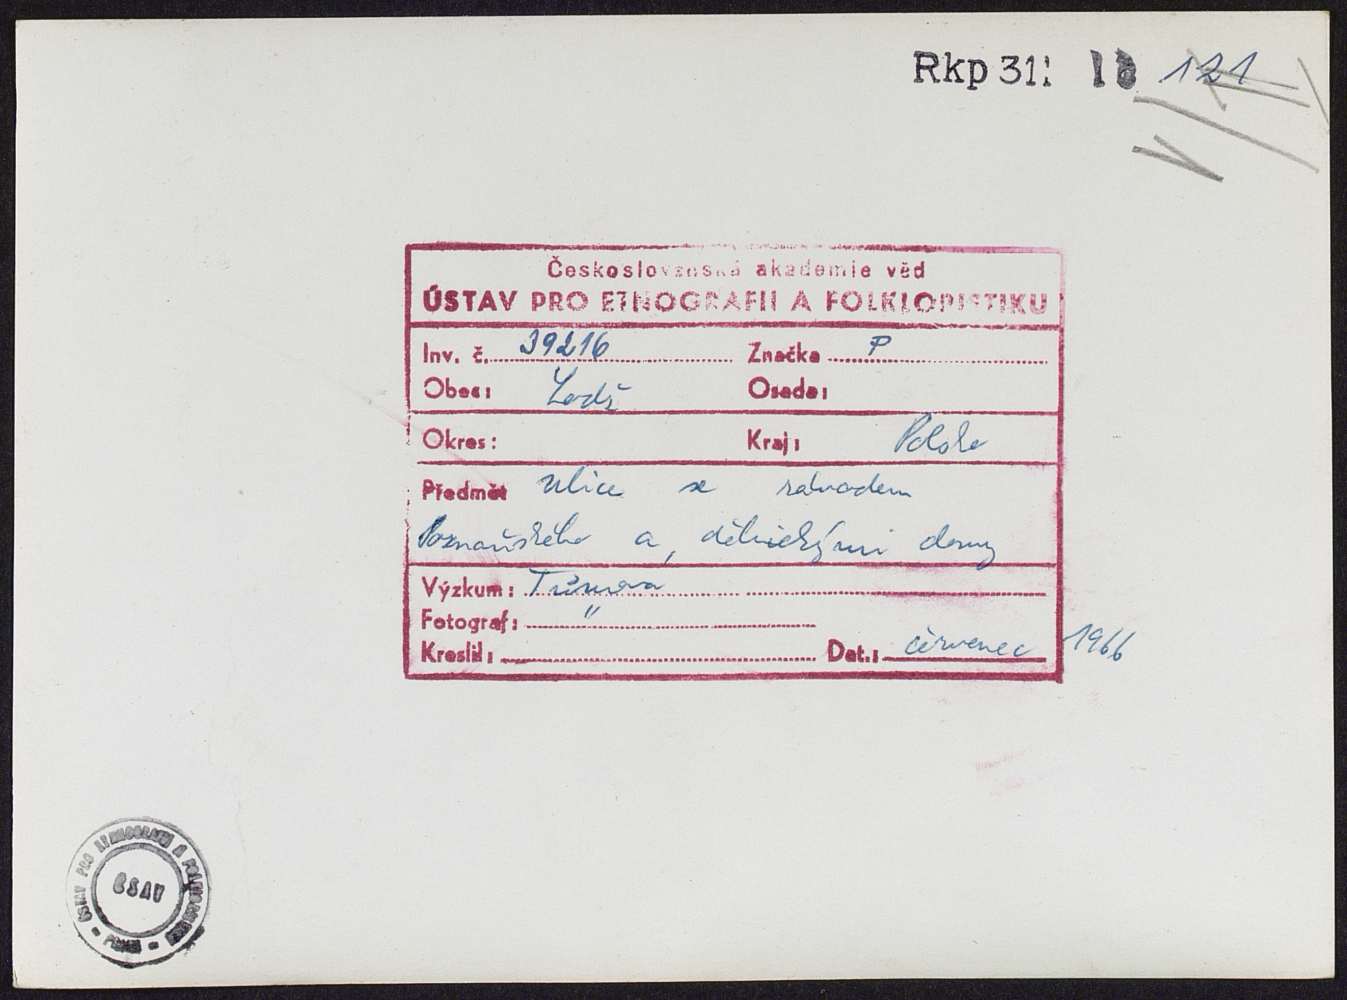 Rkp 311 18 121
Československá akademie věd
ÚSTAV PRO ETNOGRAFII A FOLKLORISTIKU
Inv. č. 39216 Značka P
Obec: Lodž Osada:
Okres: Kraj: Polsko
Předmět ulice se závodem
Poznańského a dělnickými domy
Výzkum: Tůmova
Fotograf: "
Kreslil: Dat.: červenec 1966
ÚSTAV PRO ETNOGRAFII A FOLKLORISTIKU
ČSAV
– PRAHA –